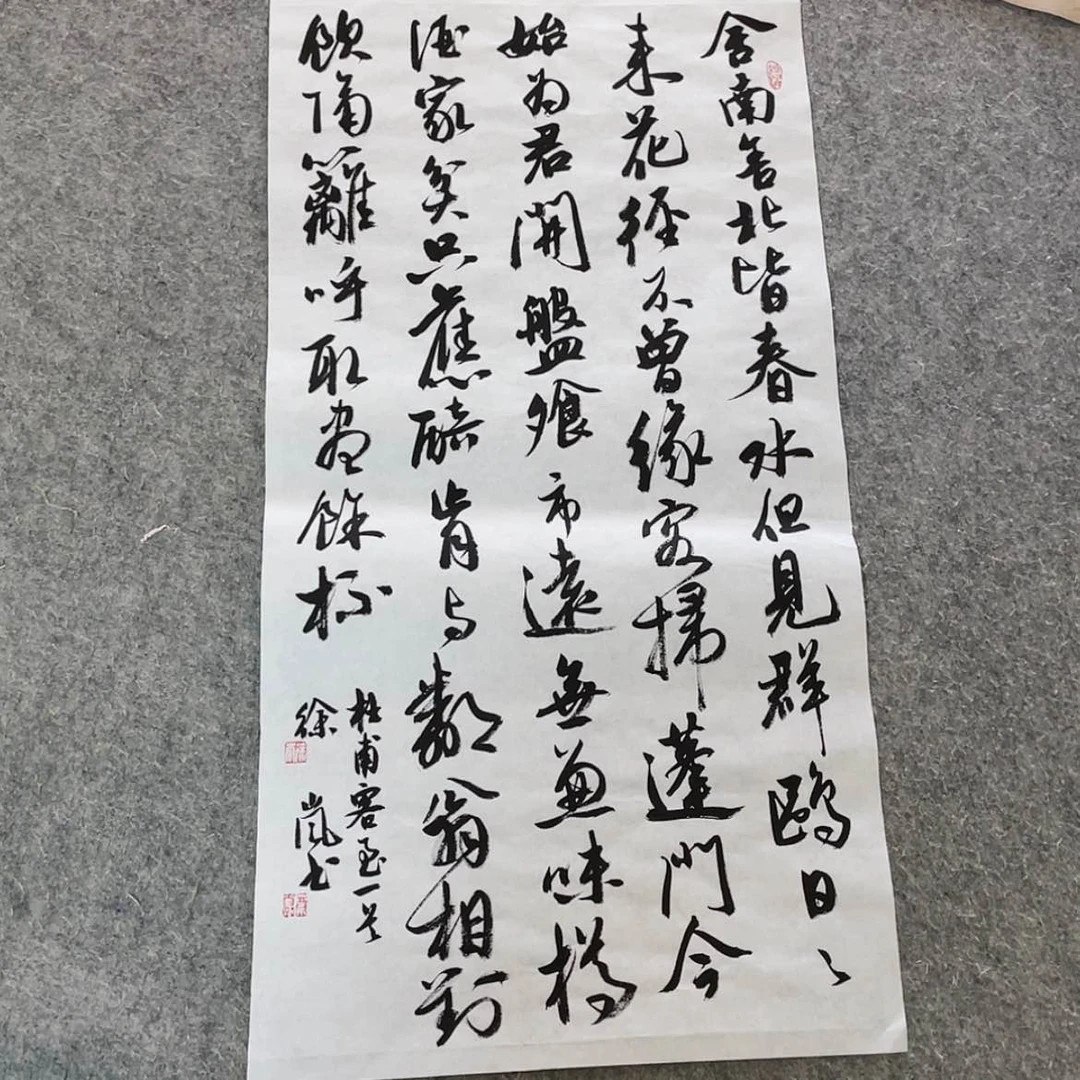 舍南舍北皆春水但見群鷗日〻
来花徑不曾緣客掃蓬門今
始为君開盤飧市遠無兼味樽
酒家貧只舊醅肯与鄰翁相對
飲隔籬呼取盡餘杯
杜甫客至一首
徐嵐书